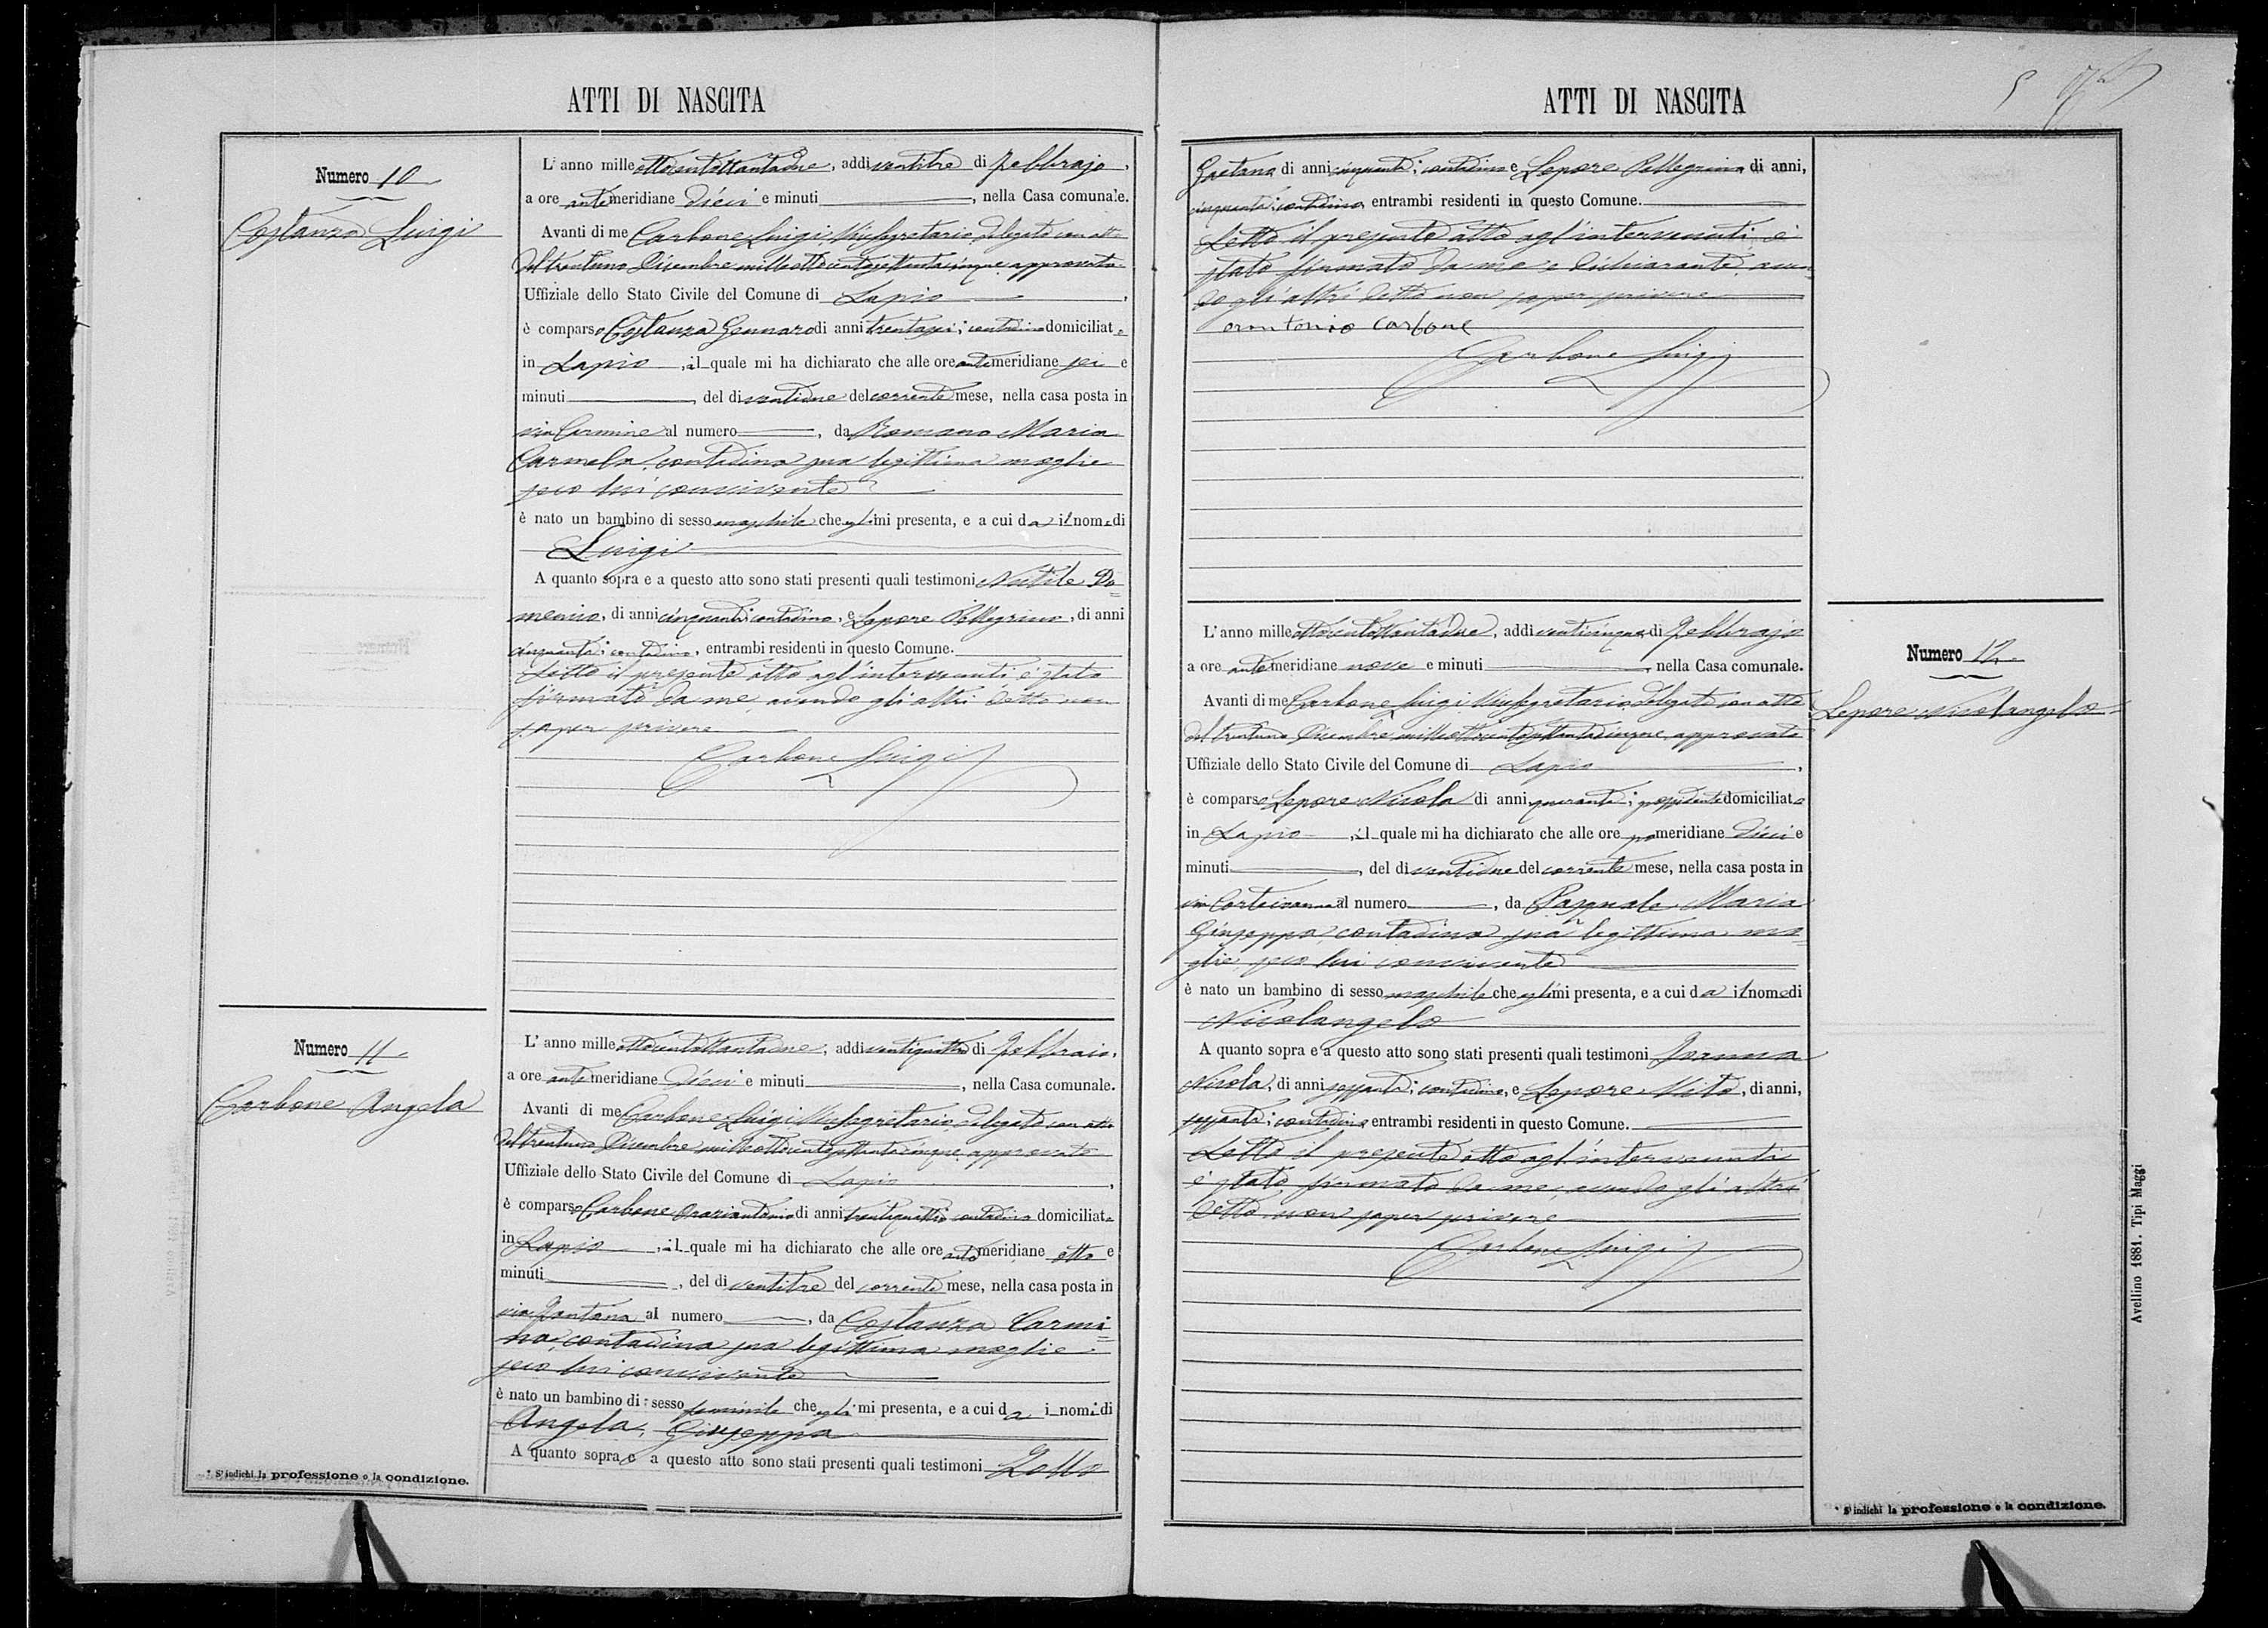 ATTI DI NASCITA
Numero 10
Costanza Luigi
L'anno mille ottocentottantadue, addì ventitre di Febbrajo,
a ore antemeridiane dieci e minuti, nella Casa comunale.
Avanti di me Carbone Luigi, Vicesegretario delegato con atto
del trentuno Dicembre milleottocentosettantacinque approvato
Uffiziale dello Stato Civile del Comune di Lapio,
è comparso Costanza Gennaro di anni trentasei; contadino domiciliato
in Lapio, il quale mi ha dichiarato che alle ore antemeridiane sei e
minuti, del dì ventidue del corrente mese, nella casa posta in
via Carmine al numero, da Romano Maria
Carmela, contadina sua legittima moglie
seco lui convivente
è nato un bambino di sesso maschile che egli mi presenta, e a cui da il nome di
Luigi
A quanto sopra e a questo atto sono stati presenti quali testimoni Do=
menico, di anni cinquanta; contadino, e Lepore Pellegrino, di anni
cinquanta; contadino, entrambi residenti in questo Comune.
Letto il presente atto agl'intervenuti è stato
firmato da me, avendo gli altri detto non
saper scrivere
Carbone Luigi
Numero 11
Carbone Angela
L'anno mille ottocentottantadue, addì ventiquattro di Febbraio,
a ore antemeridiane dieci e minuti, nella Casa comunale.
Avanti di me Carbone Luigi Vicesegretario delegato con atto
del trentuno Dicembre milleottocentosettantacinque approvato
Uffiziale dello Stato Civile del Comune di Lapio,
è comparso Carbone Oraziantonio di anni trentaquattro contadino domiciliato
in Lapio, il quale mi ha dichiarato che alle ore antemeridiane otto e
minuti, del dì ventitre del corrente mese, nella casa posta in
via Fontana al numero, da Costanza Carmi=
na, contadina sua legittima moglie
seco lui convivente
è nato un bambino di sesso femminile che egli mi presenta, e a cui da i nomi di
Angela, Giuseppa
A quanto sopra e a questo atto sono stati presenti quali testimoni Zollo
* S'indichi la professione o la condizione.
ATTI DI NASCITA
5
Gaetano di anni cinquanta; contadino e Lepore Pellegrino di anni,
cinquanta; contadino, entrambi residenti in questo Comune.
Letto il presente atto agl'intervenuti è
stato firmato da me e dichiarante, aven=
do gli altri detto non saper scrivere
orantonio carbone
Carbone Luigi
Numero 12
Lepore Nicolangelo
L'anno mille ottocentottantadue, addì venticinque di Febbrajo
a ore antemeridiane nove e minuti, nella Casa comunale.
Avanti di me Carbone Luigi Vicesegretario delegato con atto
del trentuno Dicembre milleottocentosettantacinque approvato
Uffiziale dello Stato Civile del Comune di Lapio,
è comparso Lepore Nicola di anni quaranta; possidente domiciliato
in Lapio, il quale mi ha dichiarato che alle ore pomeridiane dieci e
minuti, del dì ventidue del corrente mese, nella casa posta in
via al numero, da Pasquale Maria
Giuseppa, contadina sua legittima mo=
glie, seco lui convivente
è nato un bambino di sesso maschile che egli mi presenta, e a cui da il nome di
Nicolangelo
A quanto sopra e a questo atto sono stati presenti quali testimoni
Nicola, di anni sessanta; contadino, e Lepore Vito, di anni,
sessanta; contadino entrambi residenti in questo Comune.
Letto il presente atto agl'intervenuti
è stato firmato da me, avendo gli altri
detto non saper scrivere
Carbone Luigi
* S'indichi la professione o la condizione.
Avellino 1881. Tipi Maggi